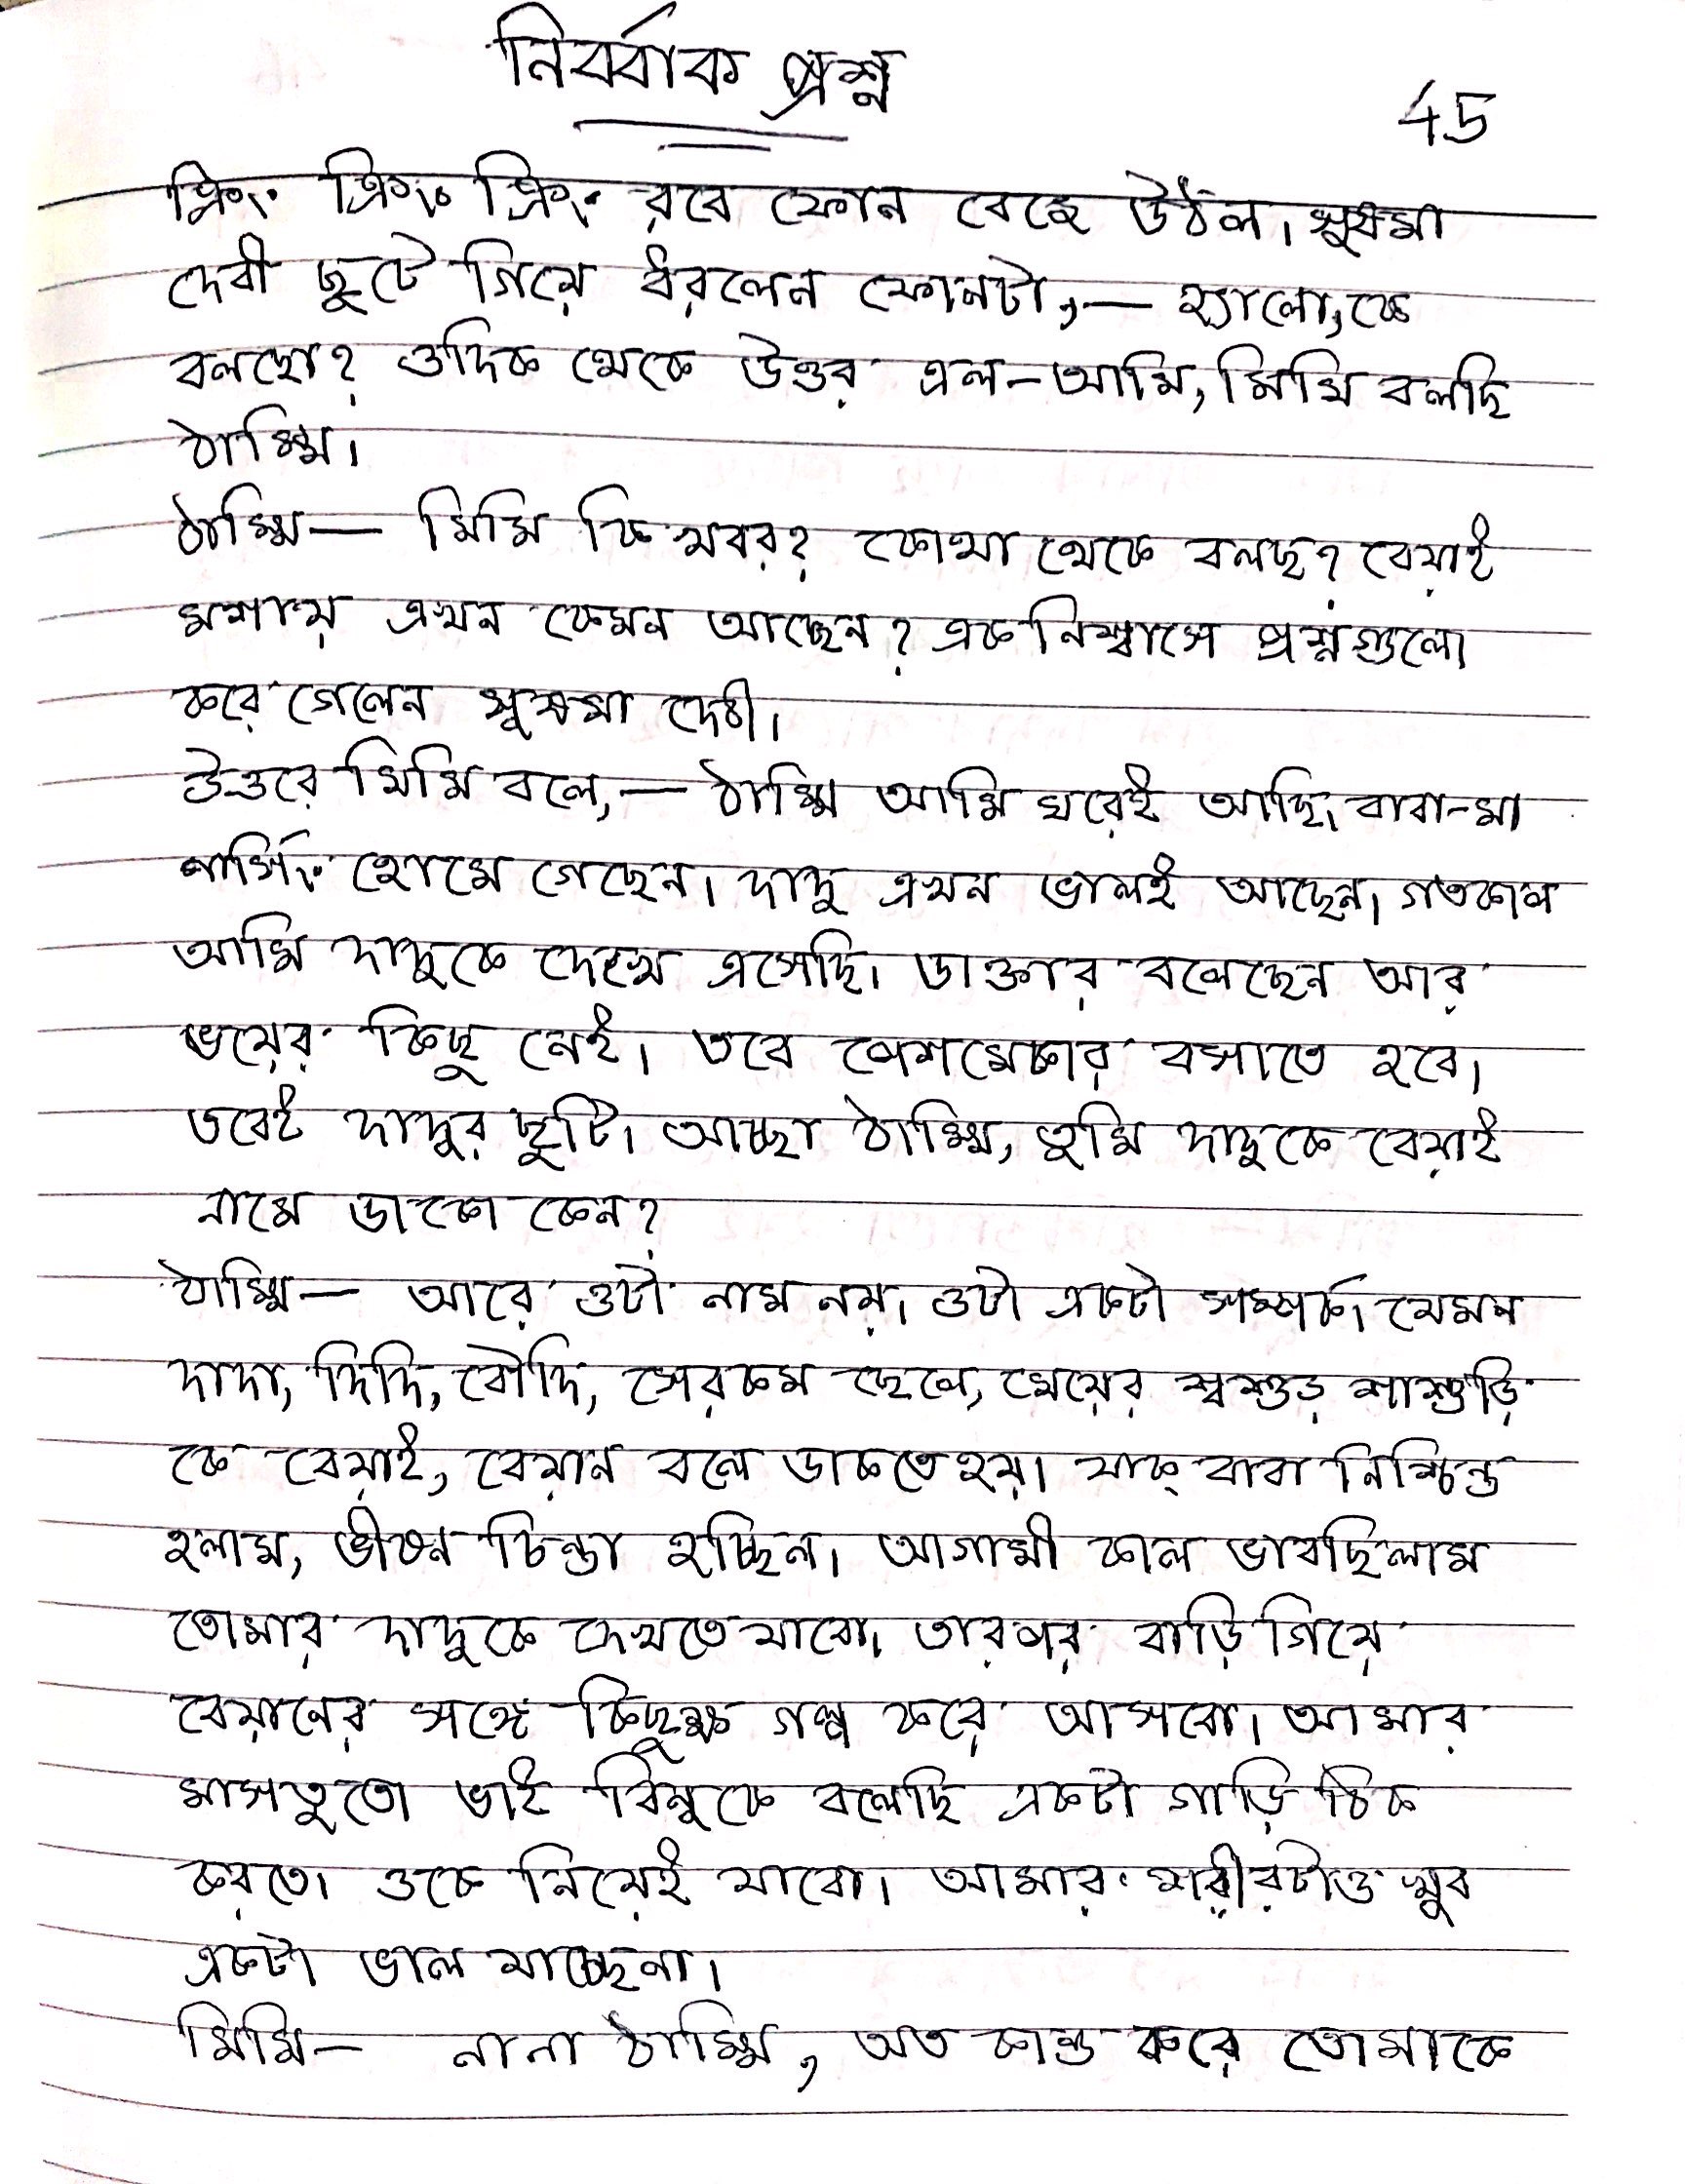 নির্বাক প্রশ্ন
45
ক্রিং ক্রিং ক্রিং রবে ফোন বেজে উঠল। সুষমা
দেবী ছুটে গিয়ে ধরলেন ফোনটা,— হ্যালো, কে
বলছো? ওদিক থেকে উত্তর এল-আমি, মিমি বলছি
ঠাম্মি।
ঠাম্মি— মিমি কি খবর? কোথা থেকে বলছ? বেয়াই
মশায় এখন কেমন আছেন? এক নিশ্বাসে প্রশ্নগুলো
করে গেলেন সুষমা দেবী।
উত্তরে মিমি বলে,— ঠাম্মি আমি ঘরেই আছি। বাবা-মা
নার্সিং হোমে গেছেন। দাদু এখন ভালই আছেন। গতকাল
আমি দাদুকে দেখে এসেছি। ডাক্তার বলেছেন আর
ভয়ের কিছু নেই। তবে পেশমেকার বসাতে হবে।
তবেই দাদুর ছুটি। আচ্ছা ঠাম্মি, তুমি দাদুকে বেয়াই
নামে ডাকো কেন?
ঠাম্মি— আরে ওটা নাম নয়। ওটা একটা সম্পর্ক। যেমন
দাদা, দিদি, বৌদি, সেরকম ছেলে, মেয়ের শ্বশুড় শাশুড়ি
কে বেয়াই, বেয়ান বলে ডাকতে হয়। যাক্ বাবা নিশ্চিন্ত
হলাম, ভীষন চিন্তা হচ্ছিল। আগামী কাল ভাবছিলাম
তোমার দাদুকে দেখতে যাবো। তারপর বাড়ি গিয়ে
বেয়ানের সঙ্গে কিছুক্ষ গল্প করে আসবো। আমার
মাসতুতো ভাই বিনুকে বলেছি একটা গাড়ি ঠিক
করতে। ওকে নিয়েই যাবো। আমার শরীরটাও খুব
একটা ভাল যাচ্ছেনা।
মিমি— না না ঠাম্মি, অত কান্ড করে তোমাকে